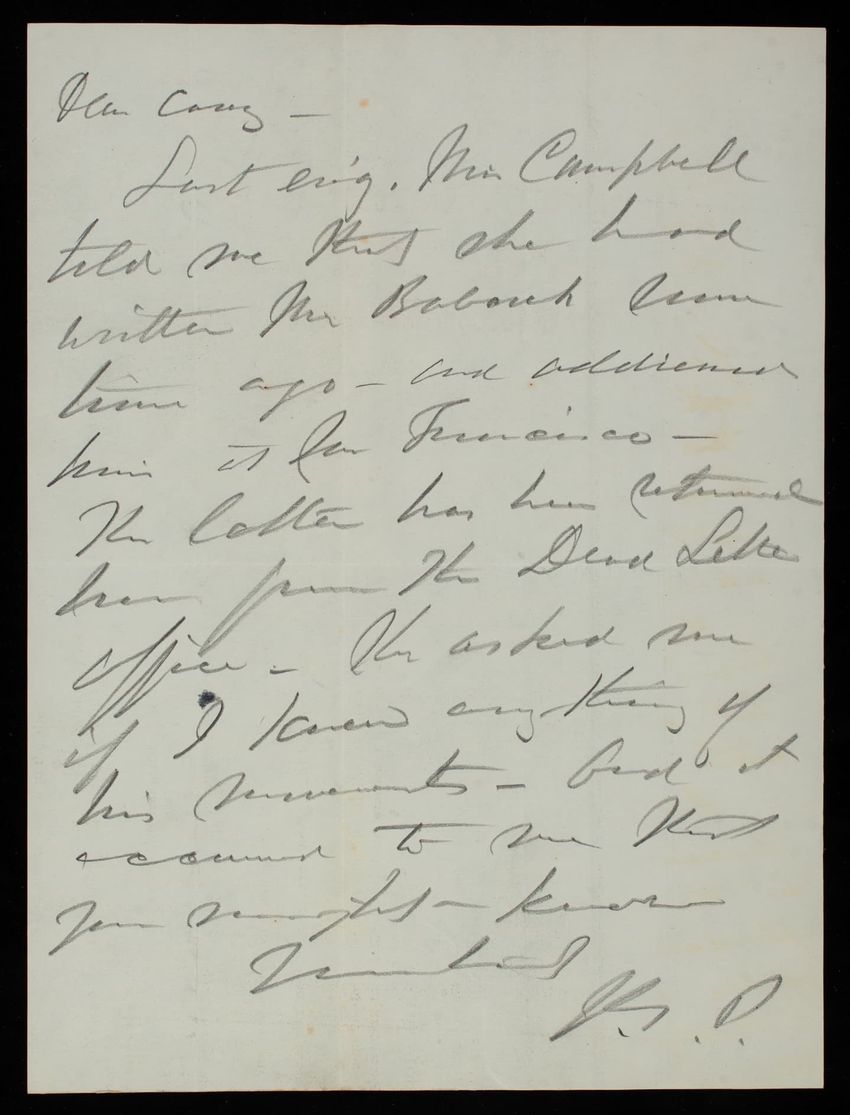 Dear Casey —
Last ev'g. Mrs Campbell
told me that she had
written Mr Babcock some
time ago — and addressed
him at San Francisco —
The letter has been returned
her from the Dead Letter
office — She asked me
if I knew anything of
his movements — And it
occurred to me that
you might — know
Yours